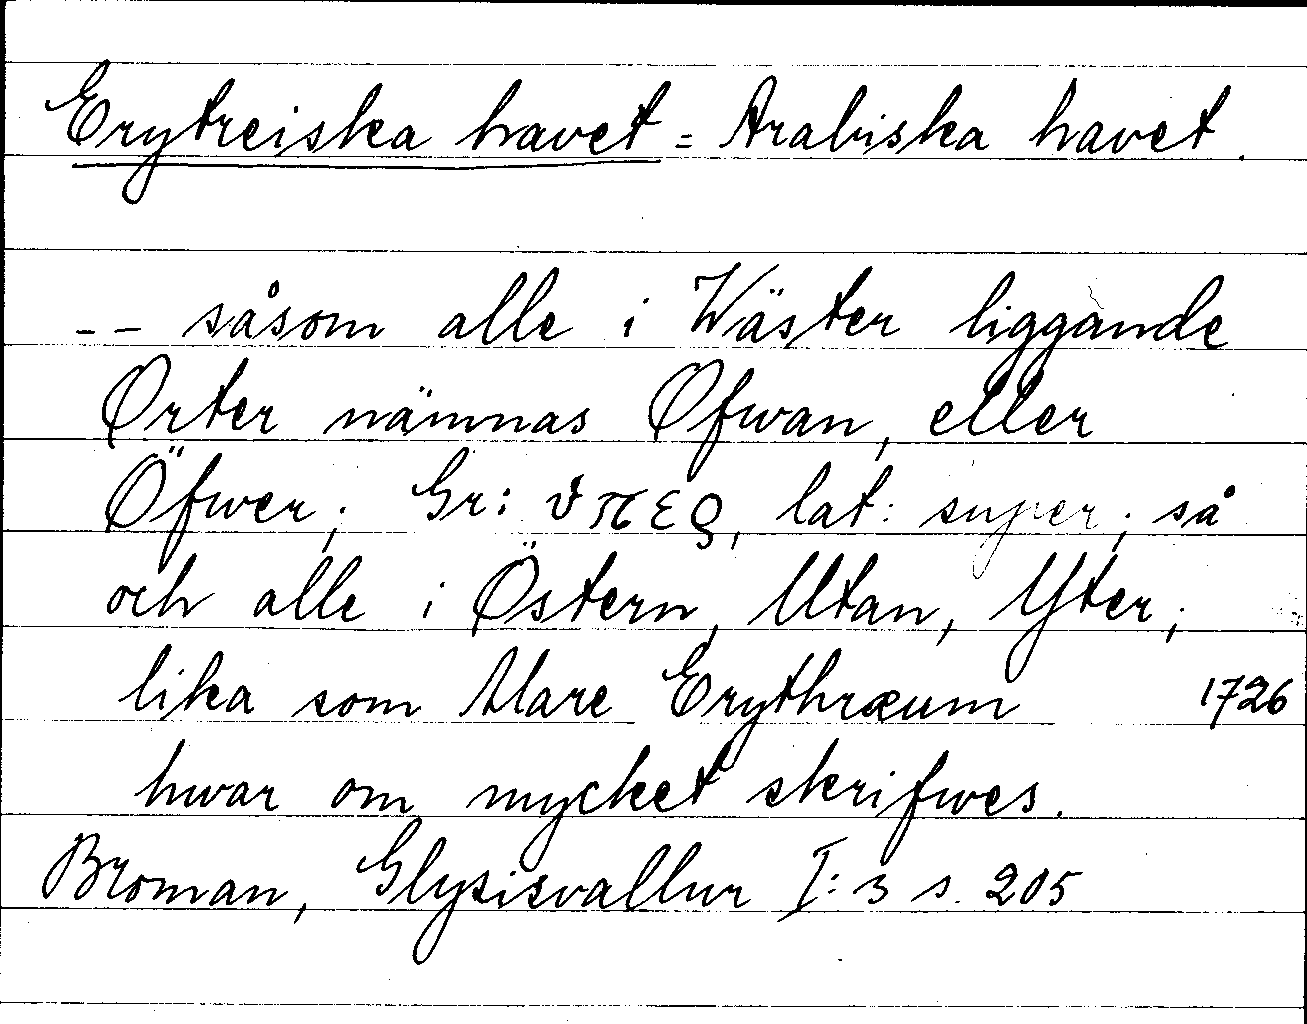 Erytreiska havet = Arabiska havet.
-- såsom alle i Wäster liggande
Orter nämnas Ofwan, eller
Öfwer; Gr: ὑπερ, lat: super; så
och alle i Östern, Utan, Ytter;
lika som Mare Erythræum 1726
hwar om mycket skrifwes.
Broman, Glysisvallur I: 3 s. 205